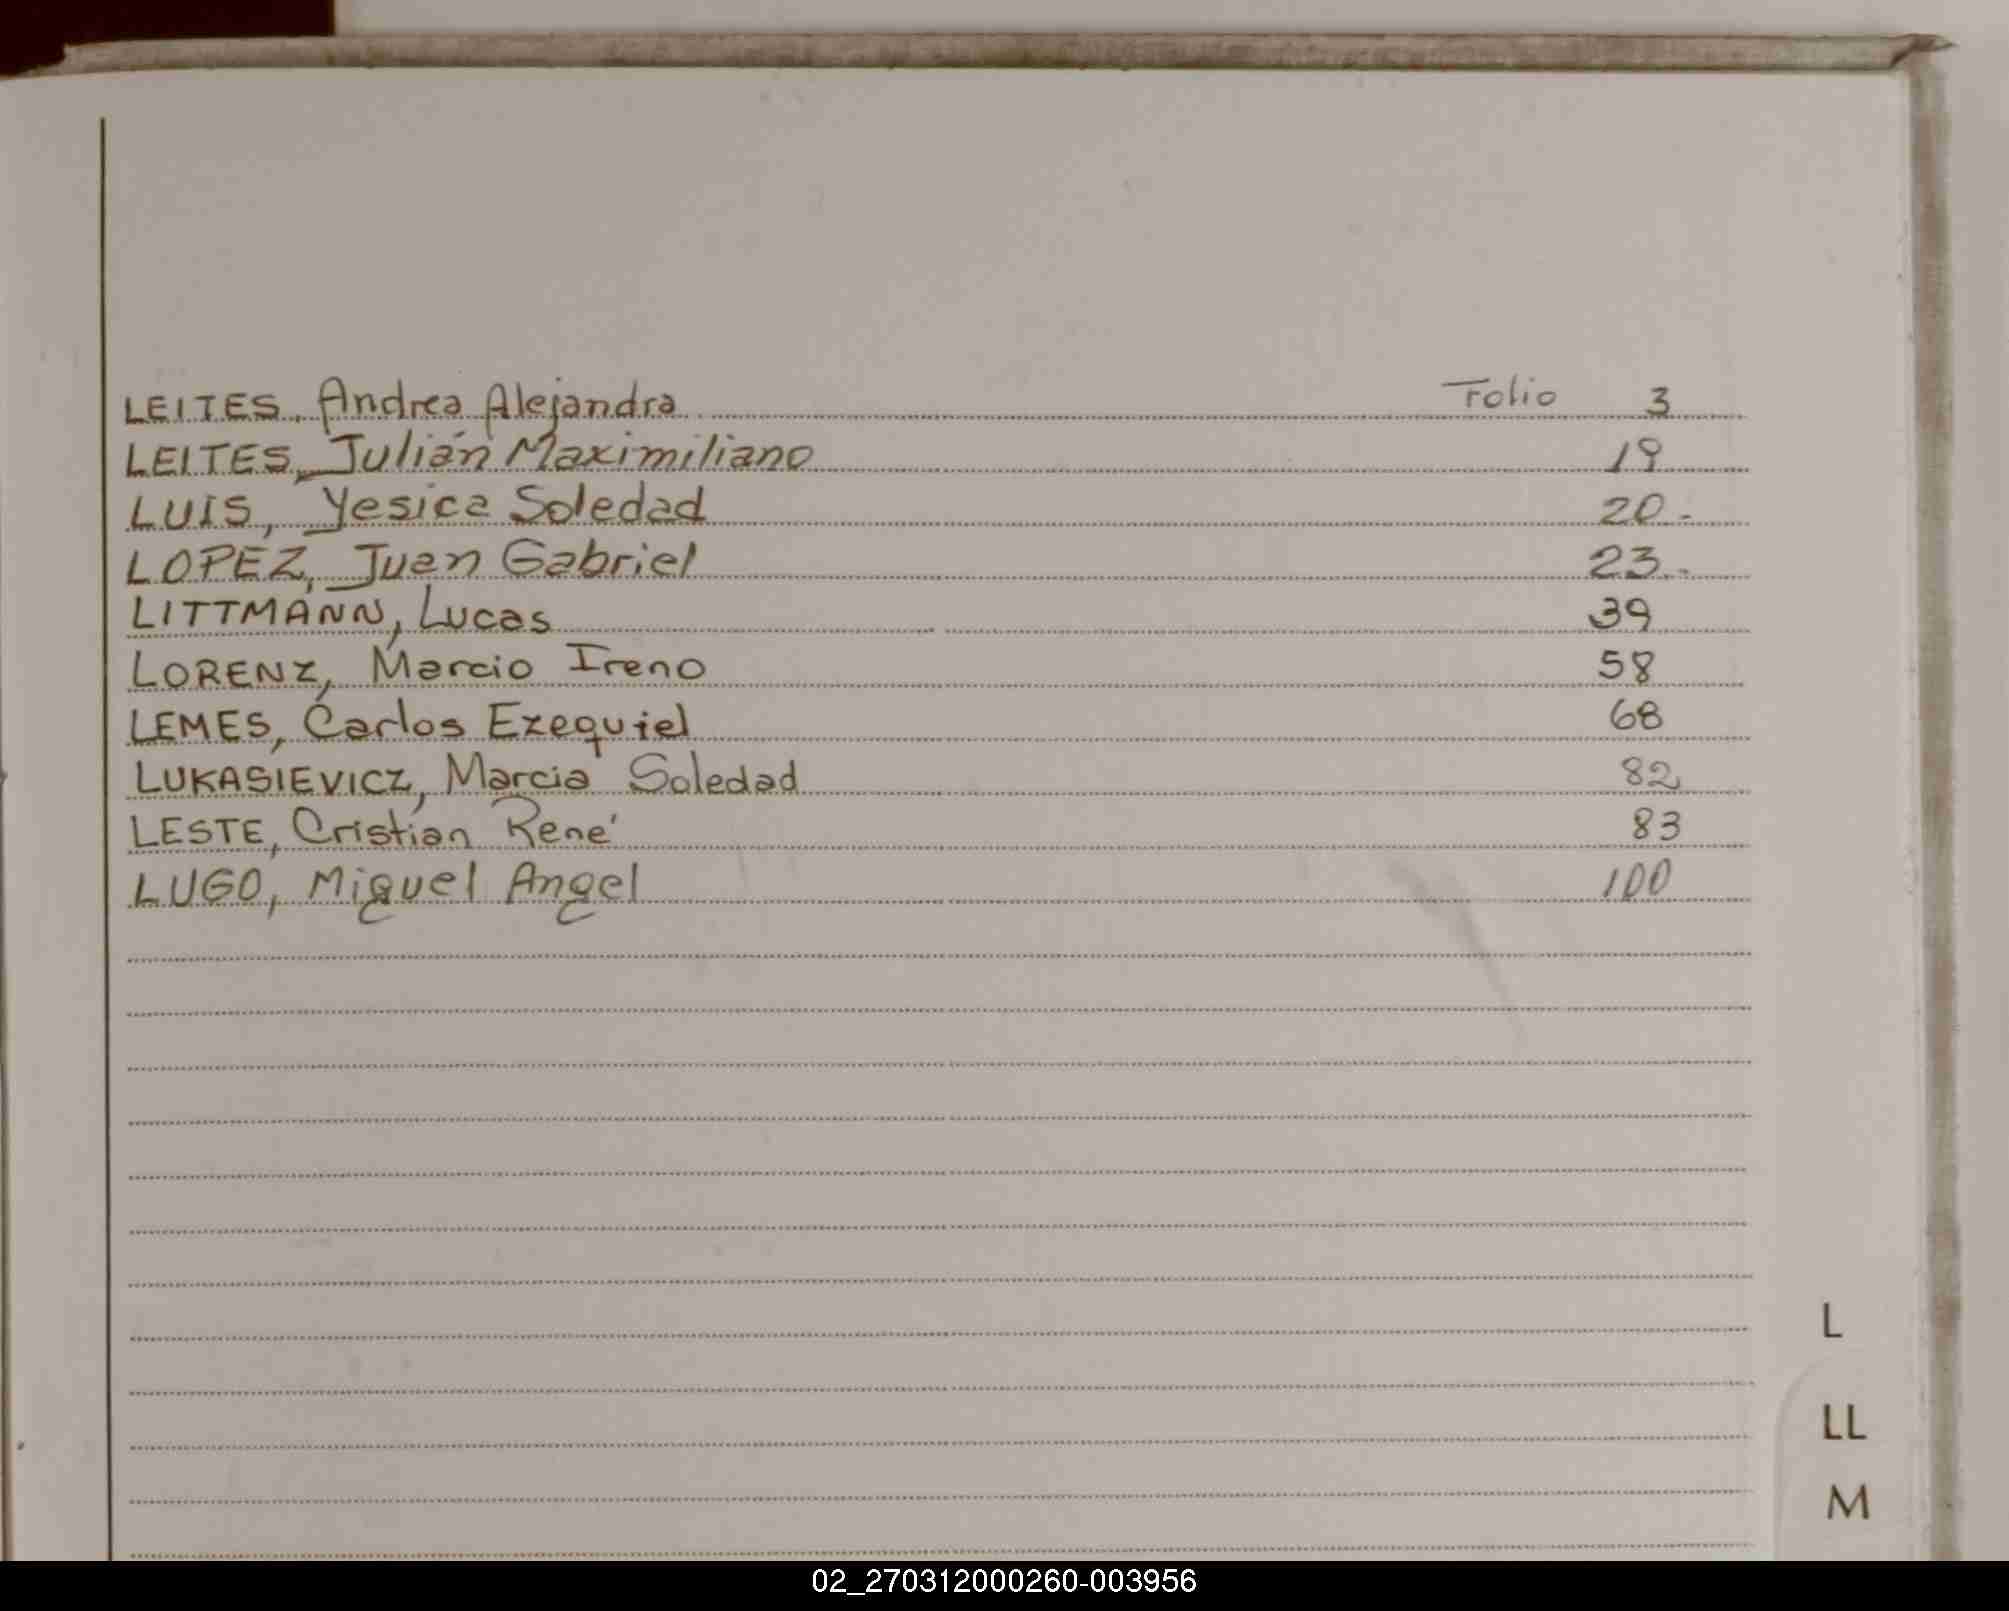 LEITES, Andrea Alejandra Folio 3
LEITES, Julián Maximiliano 19
LUIS, Yesica Soledad 20-
LOPEZ, Juan Gabriel 23-
LITTMANN, Lucas 39
LORENZ, Marcio Ireno 58
LEMES, Carlos Ezequiel 68
LUKASIEVICZ, Marcia Soledad 82
LESTE, Cristian René 83
LUGO, Miguel Angel 100
L
LL
M
02_270312000260-003956